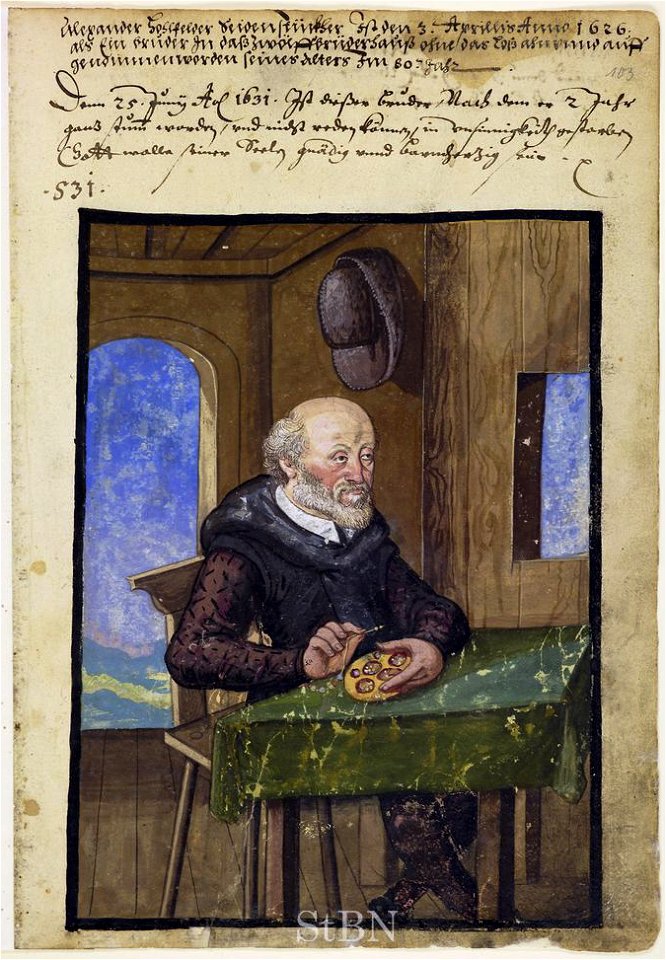 Alexander Seidensticker Ist den 3. Aprillis Anno 1626.
als Ein bruder In daß zwölff bruder hauß ohne das Loß auff
genommen worden seines alters Im 60 Jahr
103
Denn 25. Junÿ Aō 1631. Ist dießer bruder, Nach dem er 2 Jahr
gantz stumm worden, vnd nicht reden können, in vnsinnigkeit gestorben
Gott wolle seiner Seelen gnädig vnnd barmhertzig sein
.531.
StBN